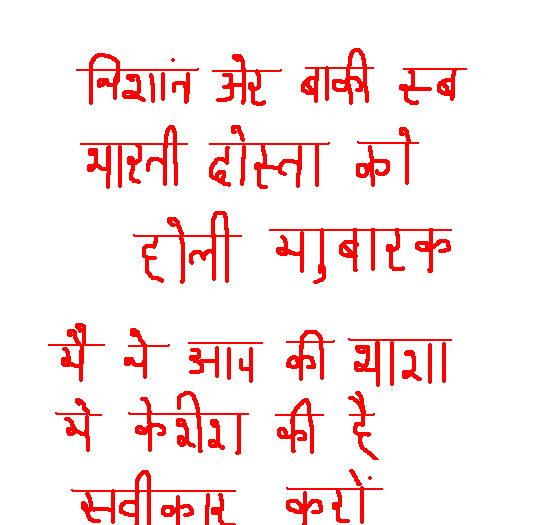 निशांत अेर बाकी स्ब
भारती दोस्ता को
होली मुबारक
मै मे आप की भाशा
मे केशीश की है
सवीकार करों